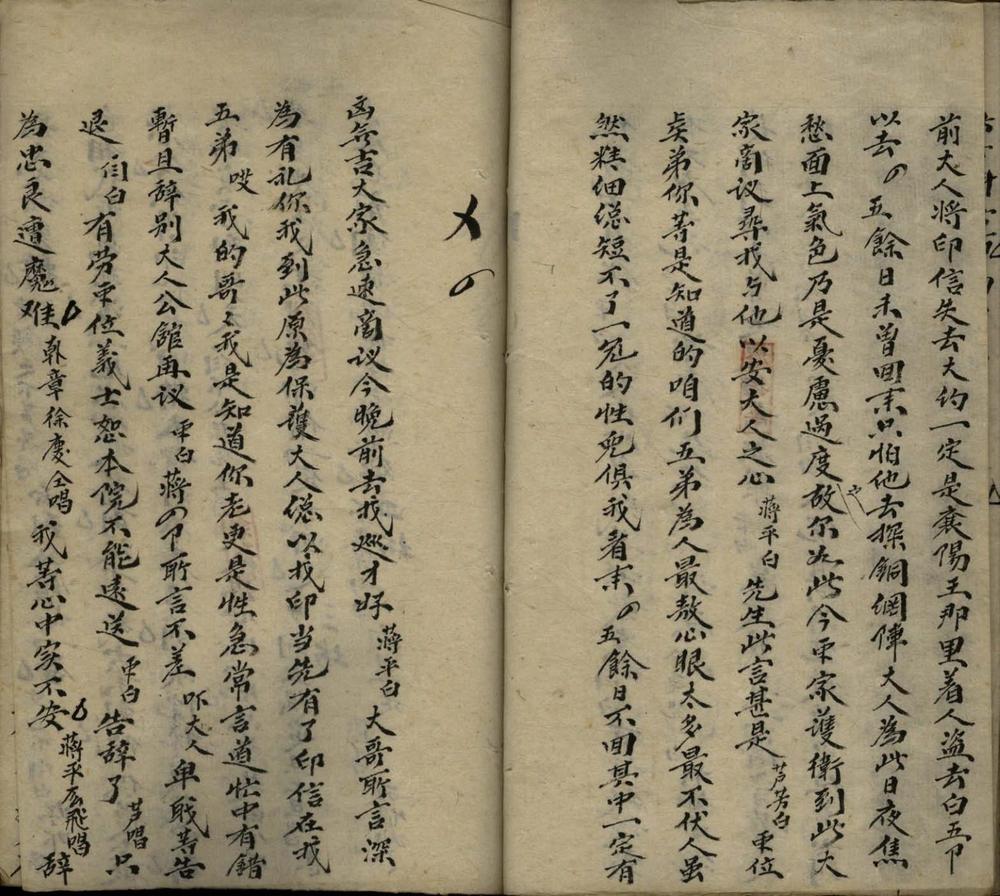 前大人將印信失去大约一定是襄陽王那里着人盗去白五卩
以去の五餘日未曾囬来只怕他去探銅網陣大人為此日夜焦
愁面上氣色乃是憂慮過度故尔如此今眾家護衛到此大
家啇议尋我与他以安大人之心 蔣平白 先生此言甚是 芦芳白 眾位
矣弟你等是知道的咱们五弟為人最敖心眼太多最不伏人虽
然精细總短不了一冠的性皃俱我看来の五餘日不囬其中一定有
メの
凶無吉大家急速啇议今晚前去找巡才好 蔣平白 大哥所言深
為有礼你我到此原為保護大人總以找印当先有了印信在我
五弟 哎 我的哥〻我是知道你老更是性急常言道忙中有錯
暫且辞别大人公館再议 眾白 蔣の卩所言不差 吓大人 卑职等告
退 闫白 有劳眾位義士恕本院不能遠送 眾白 告辞了 芦唱 只
為忠良遭魔难 韩章徐慶仝唱 我等心中实不安 蔣平 飛唱 辞